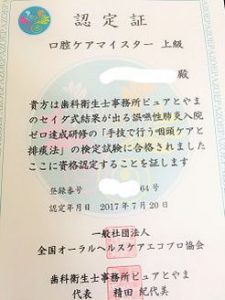 認定証
口腔ケアマイスター 上級
殿
貴方は歯科衛生士事務所ピュアとやま
のセイダ式結果が出る誤嚥性肺炎入院
ゼロ達成研修の「手技で行う咽頭ケアと
排痰法」の検定試験に合格されました
ここに資格認定することを証します
登録番号 64号
認定年月日 2017年7月20日
一般社団法人
全国オーラルヘルスケアエコプロ協会
歯科衛生士事務所ピュアとやま
代表 精田 紀代美